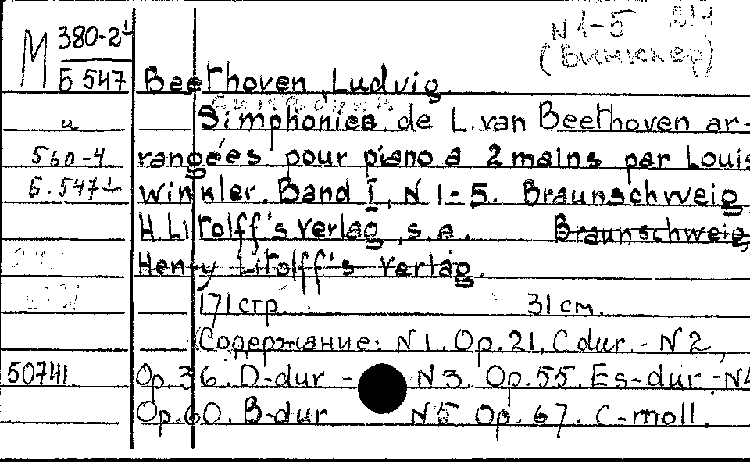 N 1-5
М 380-2
Б 547
(Винклер)
Beethoven, Ludvig
Simphonies de L. van Beethoven ar-
560-4 rangées pour piano à 2 mains par Louis
Б.547 Winkler. Band I, N 1-5. Braunschweig
H. Litolff's Verlag, s.a. Braunschweig,
Henry Litolff's Verlag.
171 стр. 31 см.
Содержание: N 1. Op. 21, C dur. - N 2,
50741 Op. 36. D-dur - N 3. Op. 55. Es-dur - N4
Op. 60. B-dur N 5 Op. 67. C-moll.